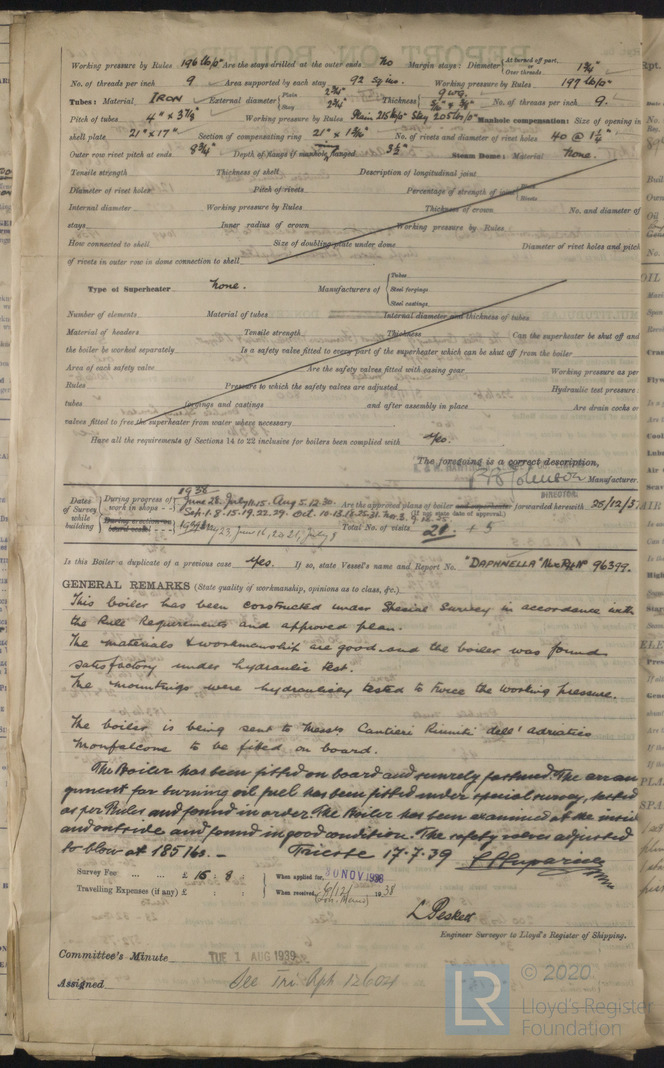 Working pressure by Rules 196 lb/□" Are the stays drilled at the outer ends No Margin stays: Diameter { At turned off part, or Over threads 1 3/4"
No. of threads per inch 9 Area supported by each stay 92 sq ins. Working pressure by Rules 197 lb/□"
Tubes: Material IRON External diameter { Plain 2 3/4" Stay 2 3/4" Thickness { 9 wg. 5/16" & 3/8" No. of threads per inch 9.
Pitch of tubes 4" x 3 7/8" Working pressure by Rules Plain 215 lb/□" Stay 205 lb/□" Manhole compensation: Size of opening in
shell plate 21" x 17" Section of compensating ring 21" x 1 3/16" No. of rivets and diameter of rivet holes 40 @ 1 1/4"
Outer row rivet pitch at ends 8 3/4" Depth of flange if manhole flanged 3 1/2" Steam Dome: Material None.
Tensile strength Thickness of shell Description of longitudinal joint
Diameter of rivet holes Pitch of rivets Percentage of strength of joint { Plate Rivets
Internal diameter Working pressure by Rules Thickness of crown No. and diameter of
stays Inner radius of crown Working pressure by Rules
How connected to shell Size of doubling plate under dome Diameter of rivet holes and pitch
of rivets in outer row in dome connection to shell
Type of Superheater None. Manufacturers of { Tubes Steel forgings Steel castings
Number of elements Material of tubes Internal diameter and thickness of tubes
Material of headers Tensile strength Thickness Can the superheater be shut off and
the boiler be worked separately Is a safety valve fitted to every part of the superheater which can be shut off from the boiler
Area of each safety valve Are the safety valves fitted with easing gear Working pressure as per
Rules Pressure to which the safety valves are adjusted Hydraulic test pressure:
tubes forgings and castings and after assembly in place Are drain cocks or
valves fitted to free the superheater from water where necessary
Have all the requirements of Sections 14 to 22 inclusive for boilers been complied with Yes.
The foregoing is a correct description,
Manufacturer.
DIRECTOR
Dates of Survey while building { During progress of work in shops - - 1938 June 28. July 11.15. Aug 5.12.30. Sep. 1.8.15.19.22.29. Oct. Are the approved plans of boiler and superheater forwarded herewith 25/12/37
(If not state date of approval.)
During erection on board vessel - - - June 16, 20 21, July 8 Total No. of visits 21 + 5
Is this Boiler a duplicate of a previous case Yes. If so, state Vessel's name and Report No. "DAPHNELLA" Nwc Rpt No 96399.
GENERAL REMARKS (State quality of workmanship, opinions as to class, &c.)
This boiler has been constructed under Special Survey in accordance with
the Rule Requirements and approved plan.
The materials & workmanship are good and the boiler was found
satisfactory under hydraulic test.
The mountings were hydraulicly tested to twice the working pressure.
The boiler is being sent to Messrs Cantieri Riuniti dell' Adriatico
Monfalcone to be fitted on board.
The Boiler has been fitted on board and securely fastened. The arran
gement for burning oil fuel has been fitted under special survey, tested
as per Rules and found in order. The Boiler has been examined at the inside
and outside and found in good condition. The safety valves adjusted
to blow at 185 lbs. - Trieste 17-7-39
Survey Fee ... ... £ 15 : 8 : When applied for, 30 NOV 1938
Travelling Expenses (if any) £ : : When received, 6/12/ 1938
L Peskett
Engineer Surveyor to Lloyd's Register of Shipping.
Committee's Minute TUE 1 AUG 1939
Assigned See Tri Rph 12604
LR © 2020
Lloyd's Register
Foundation